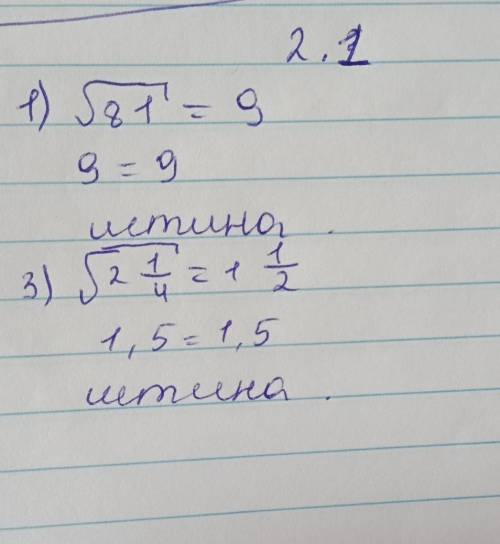 2.1
1) √81 = 9
9 = 9
истина.
3) √2 1/4 = 1 1/2
1,5 = 1,5
истина.